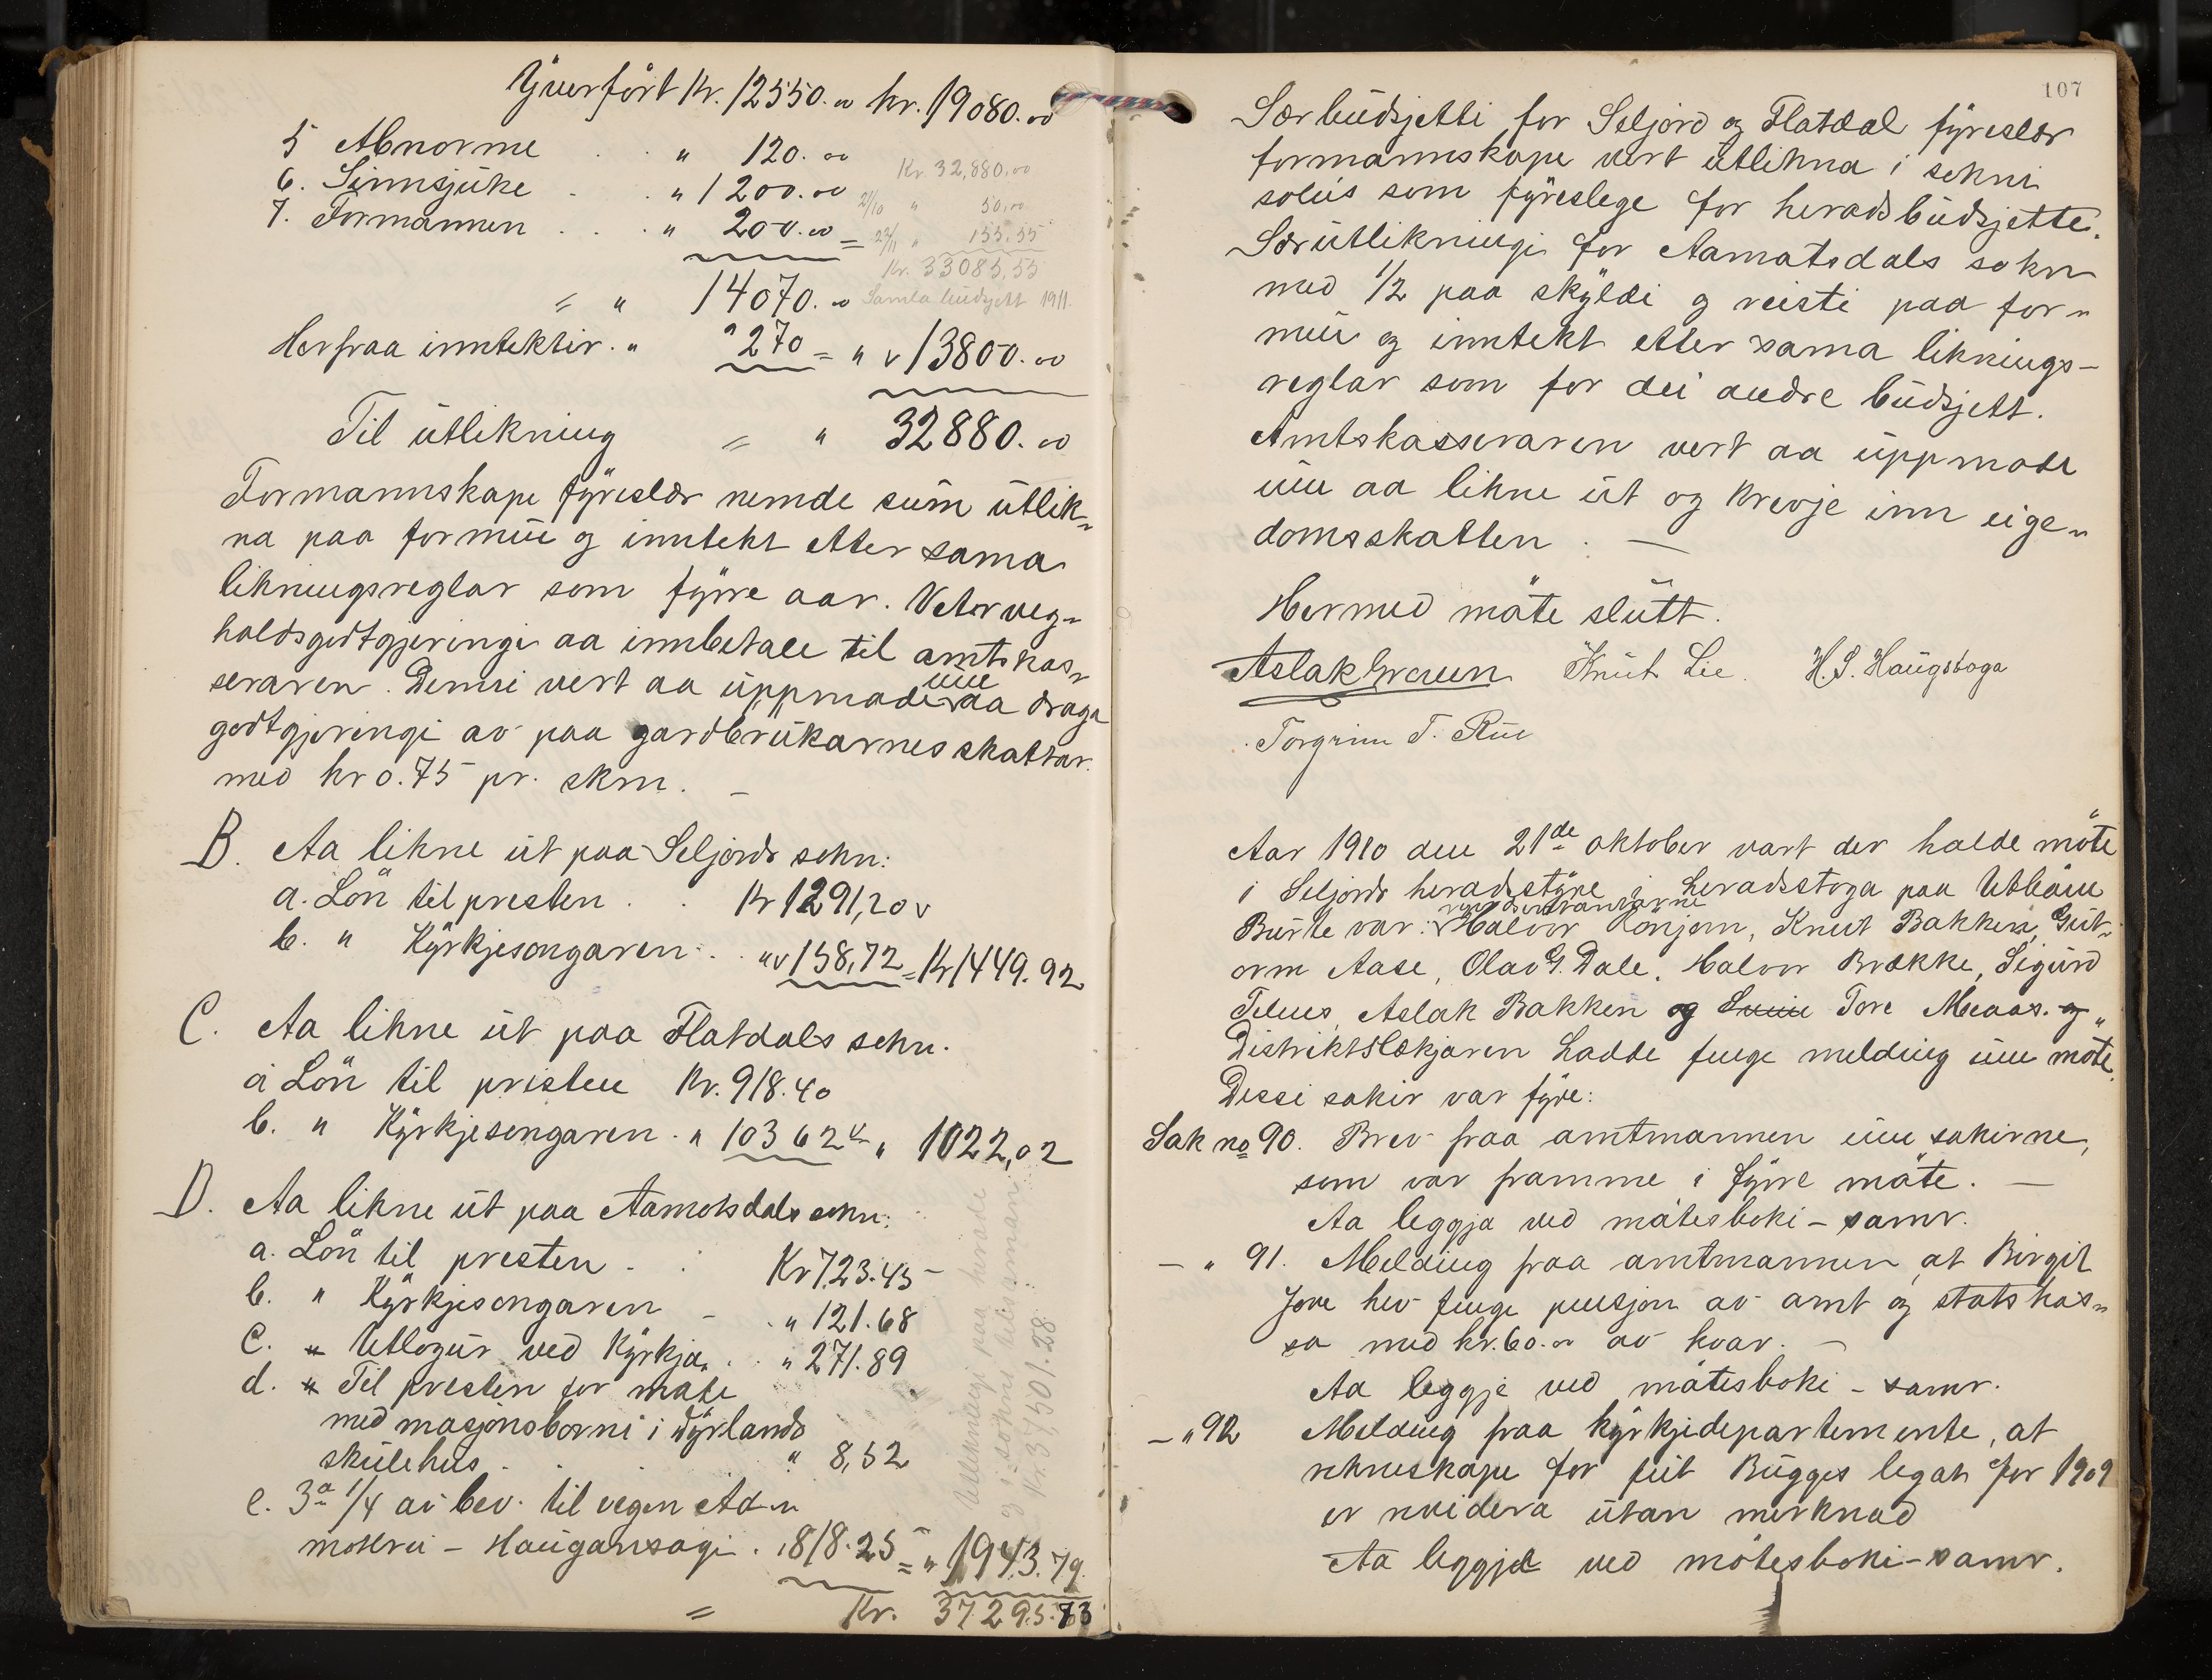 Yverfört Kr. 12550.00 kr. 19080.00
5 Abnorme . . " 120.00
6. Sinnsjuke . . " 1200.00
7. Formannen . . . " 200.00 =
Kr. 32,880.00
21/10 " 50,00
22/11 " 155,55
Kr. 33085,55
Samla budsjett 1911.
= " 14070.00
Herfraa inntektir. " " 270 = " v 13800.00
Til utlikning = " 32880.00
Formannskape fyreslær nemde sum utlik-
na paa formue og inntekt etter sama
likningsreglar som fyrre aar. Veter veg-
haldsgodtgjeringi aa innbetale til amtskas-
seraren. Denni vert aa uppmode um aa draga
godtgjeringi av paa gardbrukarnes skattar
med kr 0.75 pr. skm. –
B. Aa likne ut paa Seljords sokn:
a. Lön til presten . . Kr 1291,20 v
b. " Kyrkjesongaren . . " v 158,72 = Kr 1449.92
C. Aa likne ut paa Flatdals sokn.
a Lön til presten Kr. 918.40
b. " Kyrkjesongaren . " 103 62 v = " 1022,02
D. Aa likne ut paa Aamotsdals sokn:
a. Lön til presten . . Kr 723.45
b. " Kyrkjesongaren – . " 121.68
c. " Utlogur ved Kyrkja . . " 271.89
d. " Til presten for mote
med masjonsborni i Dyrlands
skulehus . . . " 8,52
e. 3a 1/4 av bev. til vegen Ad-
mokru – Haugansagi . " 818.25 = " 1943.79
= Kr. 37295.73
Utlikningi paa herade
og i sokni tilsaman:
Kr. 37501.28
107
Særbudsjetti for Seljord og Flatdal fyreslær
formannskape vert utlikna i sokni
soleis som fyreslege for heradsbudsjette.
Særutlikningi for Aamotsdals sokn
med 1/2 paa skyldi og reisti paa for-
mue og inntekt etter sama liknings-
reglar som for dei andre budsjett.
Amtskasseraren vert aa uppmode
um aa likne ut og krevje inn eige-
domsskatten . —
Hermed möte slutt.
Aslak Graun Knut Lie. H. S. Haugstoga
Torgrim T. Rue
Aar 1910 den 21de oktober vart der halde möte
i Seljords heradsstyre i heradsstoga paa Utbön
Burte var: Halvor Lönjom, Knut Bakken, Gut-
orm Aase, Olav G. Dale, Halvor Brække, Sigurd
Telnes, Aslak Bakken og Tore Meaas. og
Distriktslækjaren hadde fenge melding um möte.
Dessi sakir var fyre:
Sak no 90. Brev fraa amtmannen um sakirne,
som var framme i fyrre möte. —
Aa leggja ved mötesboki – samr.
— " 91. Melding fraa amtmannen at Birgit
Jore hev fenge pensjon av amt og statskas-
sa med kr. 60.00 av kvar. —
Aa leggje ved mötesboki – samr.
— " 92 Melding fraa kyrkjedepartemente, at
rekneskape for feit Bugges legat for 1909
er revidera utan merknad
Aa leggje ved mötesboki – samr.